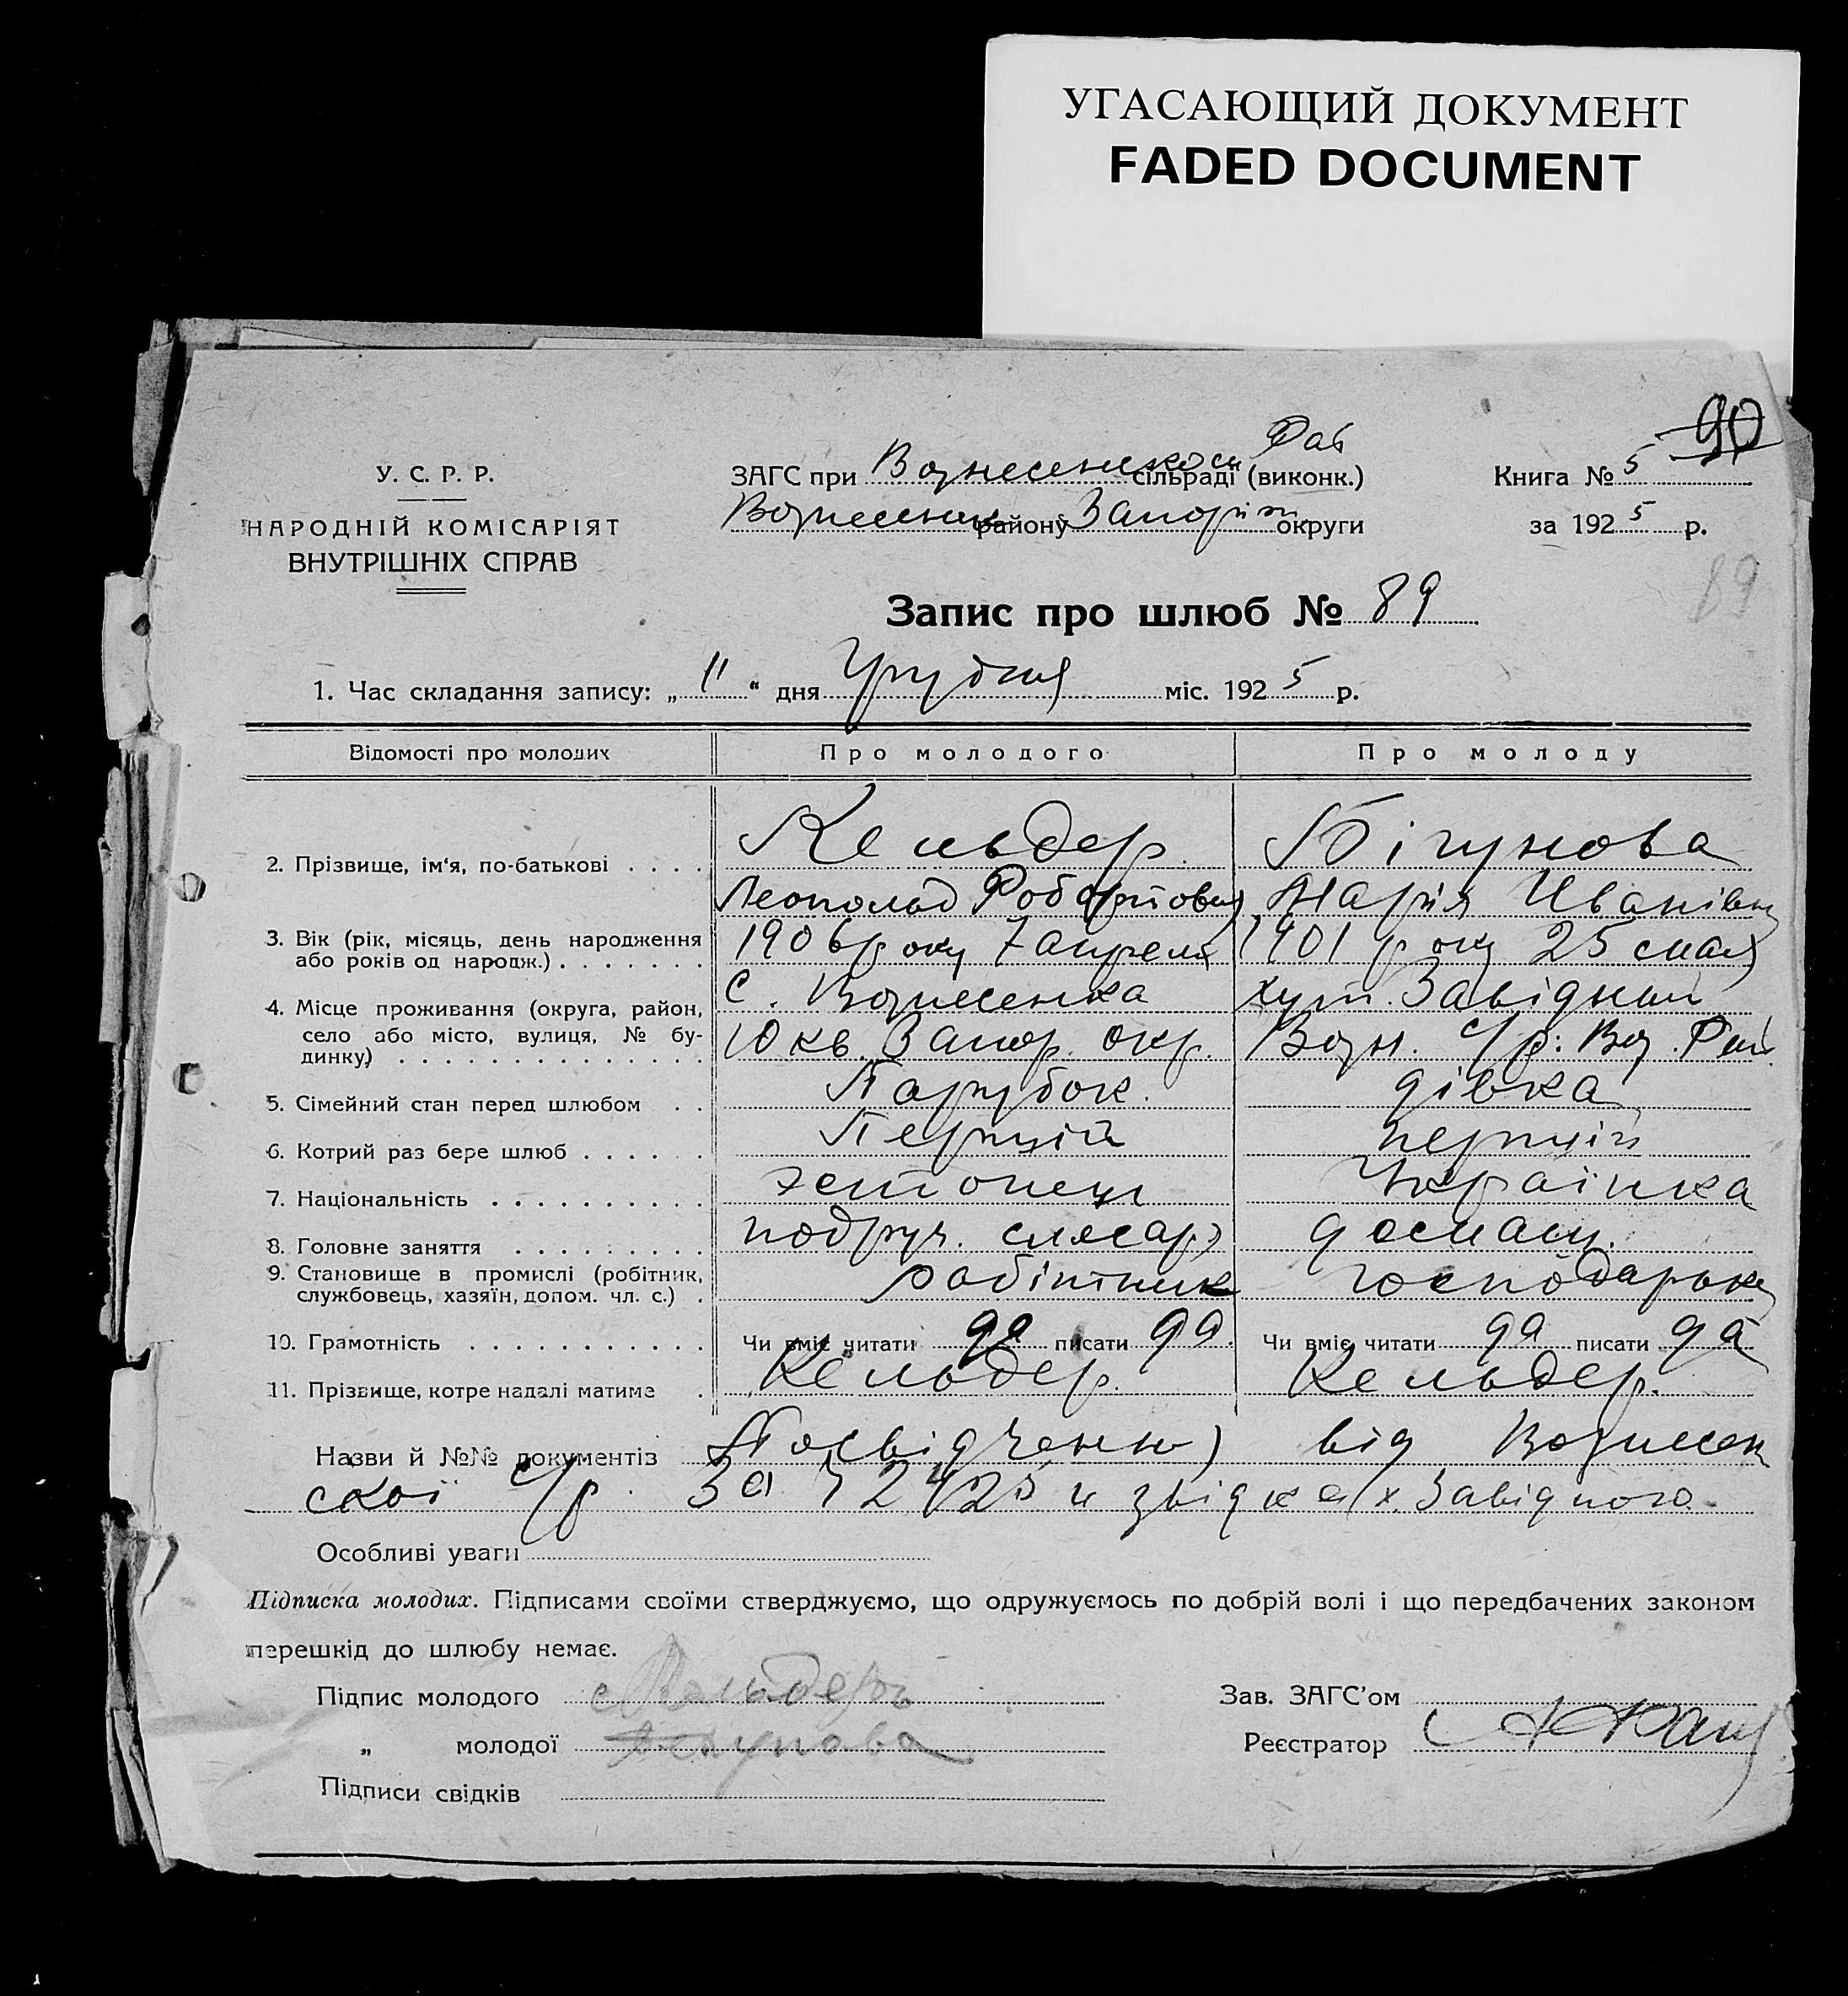 УГАСАЮЩИЙ ДОКУМЕНТ
FADED DOCUMENT
90
У. С. Р. Р.
НАРОДНІЙ КОМІСАРІЯТ
ВНУТРІШНІХ СПРАВ
Рай
ЗАГС при Вознесенском сільраді (виконк.)
Вознесенск району Запоріж округи
Книга № 5
за 1925 р.
89
Запис про шлюб № 89
1. Час складання запису: „ 11 “ дня Грудня міс. 1925 р.
Відомості про молодих Про молодого Про молоду
2. Прізвище, ім'я, по-батькові . . . . Кельдер Бігунова
Леопольд Робертович Марія Иванівна
3. Вік (рік, місяць, день народження
або років од народж.) . . . . . . . 1906 року 7 апреля 1901 року 25 мая
4. Місце проживання (округа, район,
село або місто, вулиця, № бу-
динку) . . . . . . . . . . . . . .
с. Вознесенка хут. Завідний
10 кв. Запор. окр. Возн. с/р. Воз. Рай
5. Сімейний стан перед шлюбом . . Парубок. дівка
6. Котрий раз бере шлюб . . . . . . Перший перший
7. Національність . . . . . . . . . . эстонець Українка
8. Головне заняття . . . . . . . . . подруч. слясаря домаш.
9. Становище в промислі (робітник,
службовець, хазяїн, допом. чл. с.) . робітник господарка
10. Грамотність . . . . . . . . . . . Чи вміє читати да писати да. Чи вміє читати да писати да
11. Прізвище, котре надалі матиме . Кельдер. Кельдер.
Назви й №№ документів Посвідченню від Вознесен
ської с/р. За и звідка х. Завідного
Особливі уваги
Підписка молодих. Підписами своїми стверджуємо, що одружуємось по добрій волі і що передбачених законом
перешкід до шлюбу немає.
Підпис молодого Кельдеръ
„ молодої Бігунова
Підписи свідків
Зав. ЗАГС'ом
Реєстратор